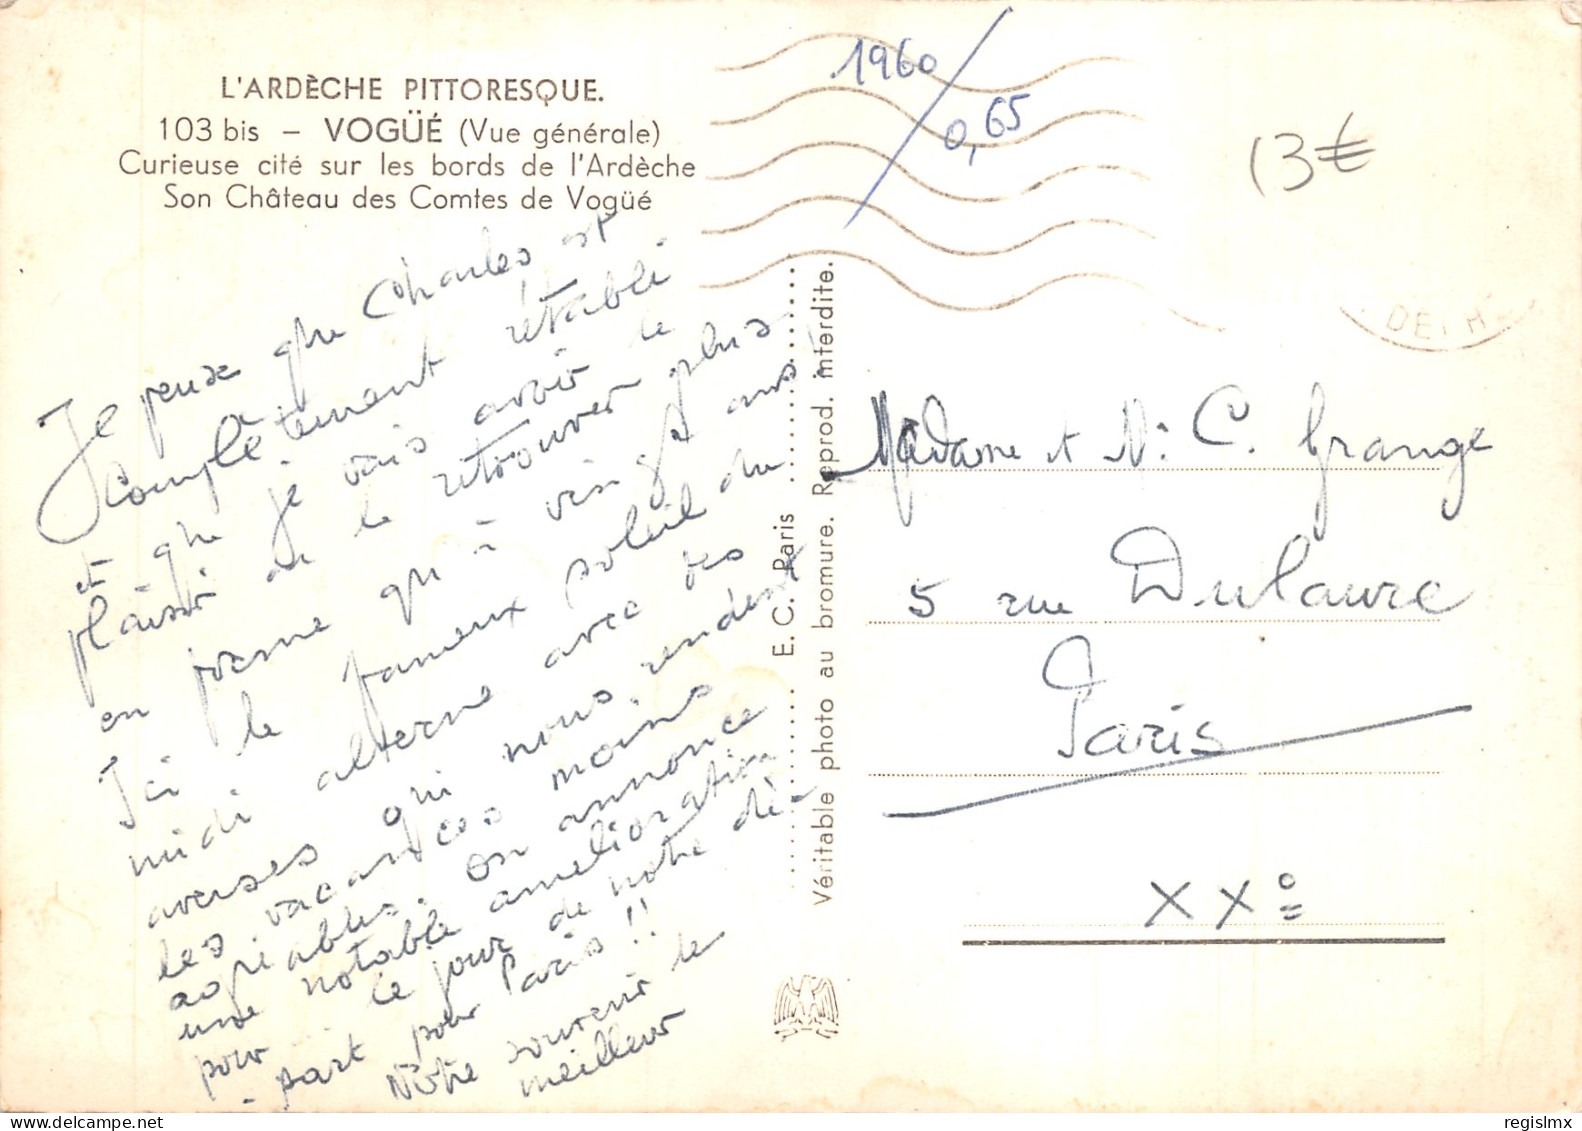 L'ARDÈCHE PITTORESQUE.
103 bis – VOGÜÉ (Vue générale)
Curieuse cité sur les bords de l'Ardèche
Son Château des Comtes de Vogüé
1960
0,65
13€
Je peux que Charles est
complètement rétabli
et que je vais avoir le
plaisir de le retrouver plus
en forme qu'à vingt ans !
Ici le fameux soleil du
midi alterne avec des
averses qui nous rendent
les vacances moins
agréables. On annonce
une notable amelioration
pour le jour de notre dé-
-part pour Paris !!
Notre souvenir le
meilleur
E. C. Paris
Véritable photo au bromure. Reprod. interdite.
Madame et Mr C. Grange
5 rue Dulaure
Paris
XXº
regislmx
delcampe.net